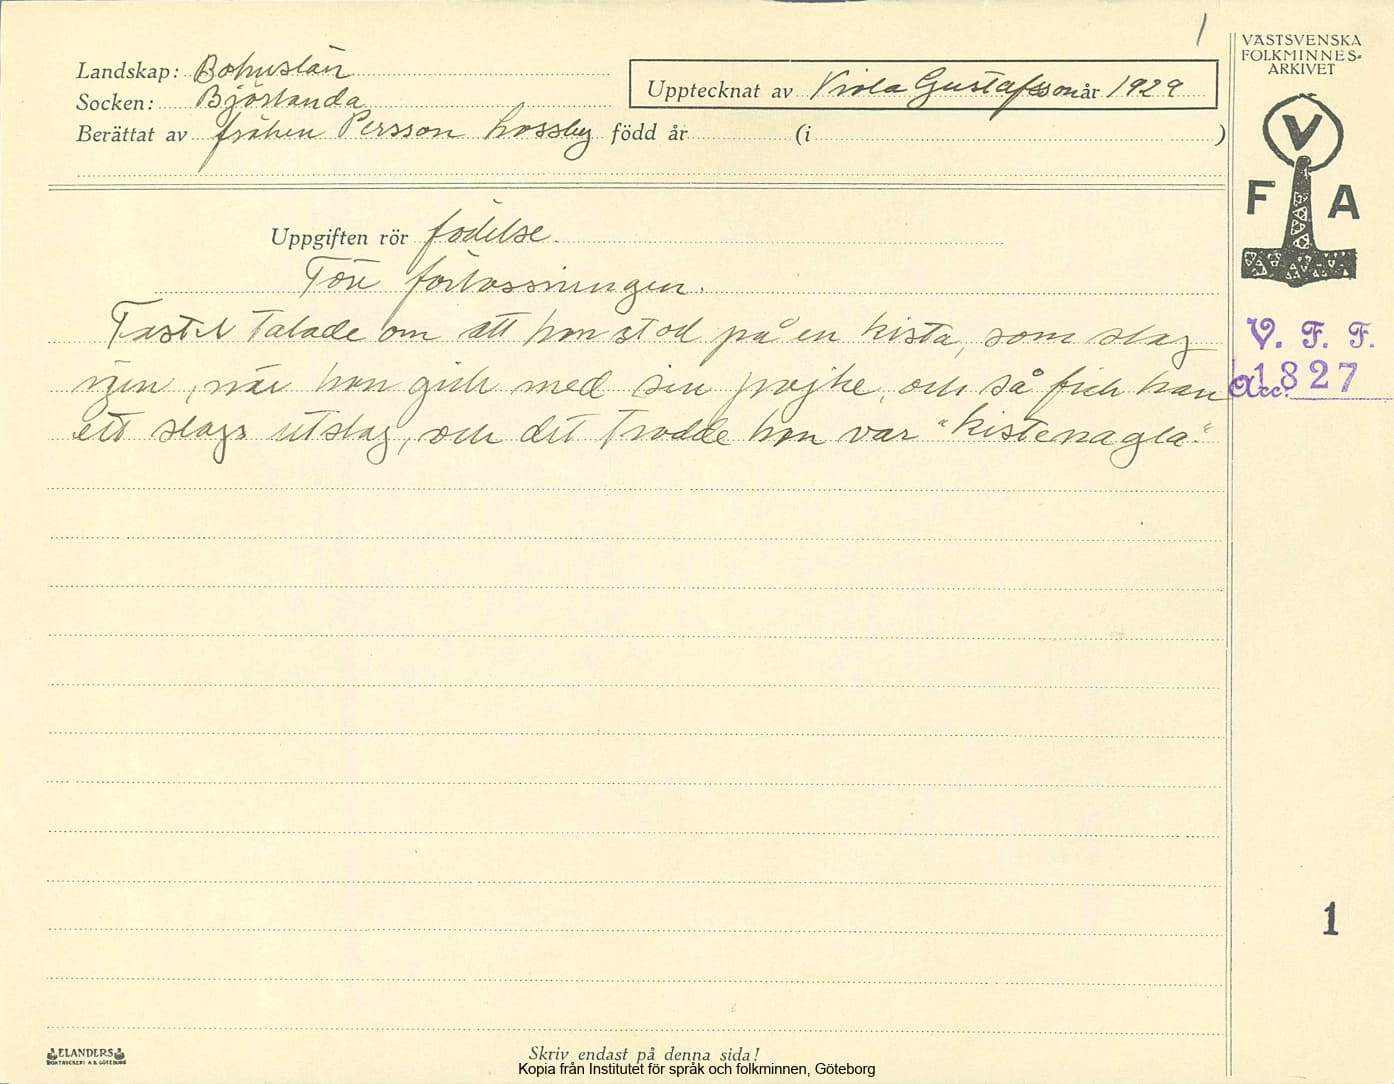 1
VÄSTSVENSKA
FOLKMINNES-
ARKIVET
Landskap: Bohuslän
Socken: Björlanda
Upptecknat av Viola Gustafsson år 1929
Berättat av fröken Persson Lossby född år (i )
V
F A
Uppgiften rör födelse.
Före förlossningen.
Faster talade om att hon stod på en kista, som slag
igen, när hon gick med sin pojke, och så fick han
ett slags utslag, och det trodde hon var "kistenagla."
V. F. F.
Acc. 1827
1
ELANDERS
BOKTRYCKERI A.B. GÖTEBORG
Skriv endast på denna sida!
Kopia från Institutet för språk och folkminnen, Göteborg